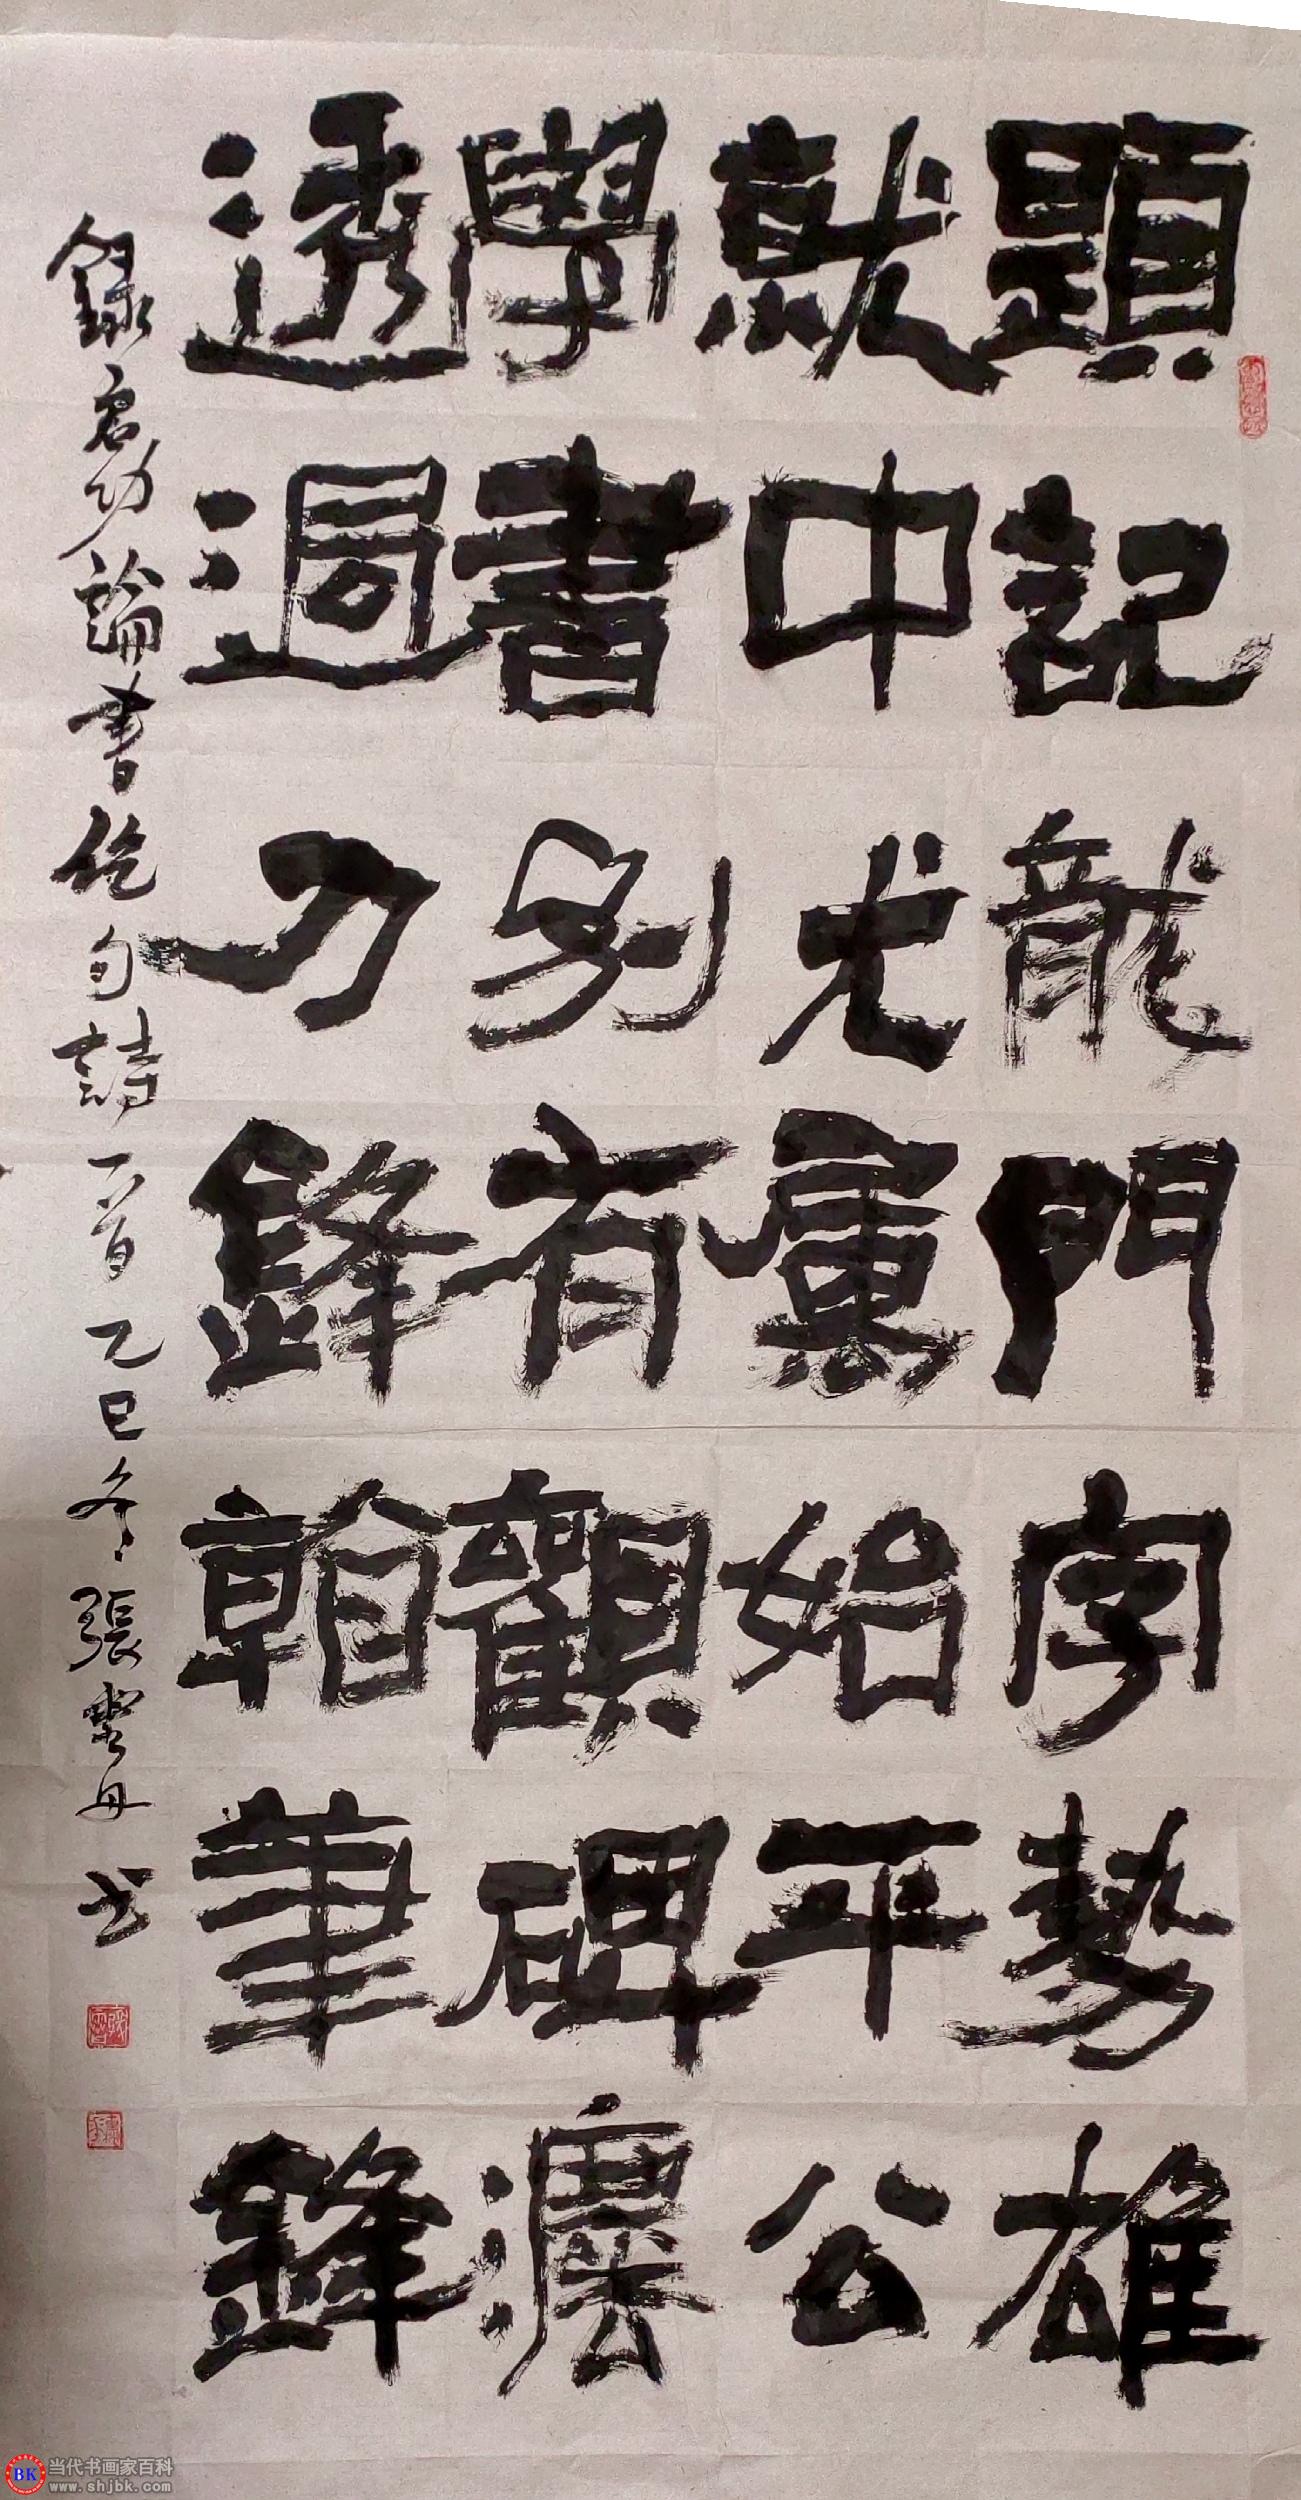 題記龍門字勢雄
就中尤屬始平公
學書別有觀碑灋
透過刀鋒看筆鋒
錄启功論書绝句詩一首乙巳冬張丹书
BK 当代书画家百科
www.shjbk.com